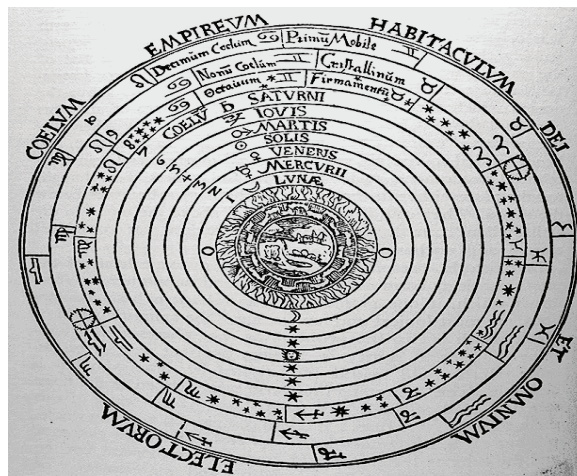 COELUM EMPIREVM HABITACVLVM DEI ET OMNIVM ELECTORVM
Decimum Coelum ♋ Primũ Mobile ♊
Nonũ Coelũm ♊ Cristallinũm ♉
Octauum ♊ Firmamentũ ♉
COELṼ ♄ SATVRNI
IOVIS
MARTIS
☉ SOLIS
♀ VENERIS
☿ MERCVRII
☽ LVNÆ
7
6
5
4
3
2
1